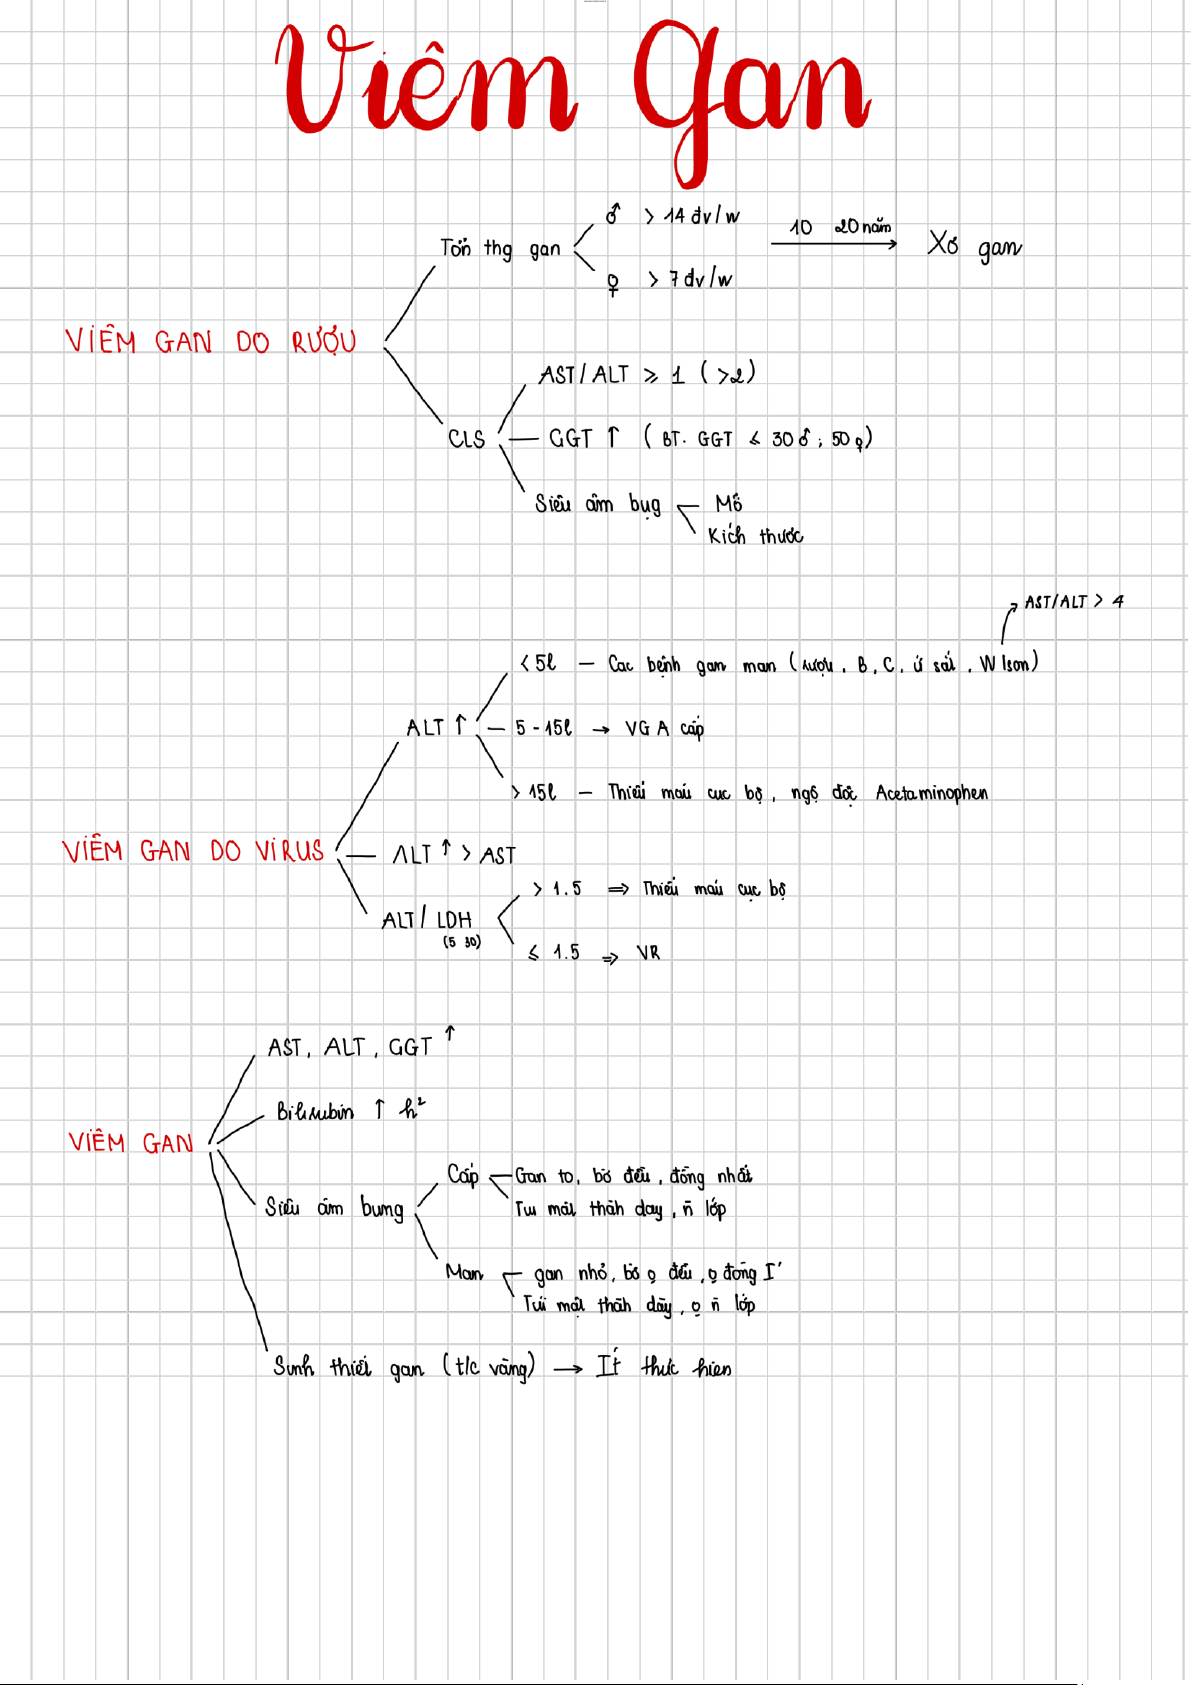 Viêm Gan
♂ > 14 đv/w
10 20 năm
Tổn thg gan
Xơ gan
♀ > 7 đv/w
VIÊM GAN DO RƯỢU
AST/ALT ≥ 1 (>2)
CLS
GGT ↑ (BT. GGT ≤ 30 ♂ ; 50 ♀)
Siêu âm bụg
Mô
Kích thước
AST/ALT > 4
< 5l – Cac bệnh gan man (rượu, B, C, ứ sắt, Wlson)
ALT ↑
5 - 15l → VG A cấp
> 15l – Thiếu máu cục bộ, ngộ độc Acetaminophen
VIÊM GAN DO VIRUS
ALT ↑ > AST
> 1.5 ⇒ Thiếu máu cục bộ
ALT / LDH
(5 30)
≤ 1.5 ⇒ VR
AST, ALT, GGT ↑
Bilirubin ↑ h²
VIÊM GAN
Cấp
Gan to, bờ đều, đồng nhất
Siêu âm bung
Túi mật thành day, n̄ lớp
Man
gan nhỏ, bờ o̲ đều, o̲ đồng I'
Túi mật thành dày, o̲ n̄ lớp
Sinh thiết gan (t/c vàng) → Ít thực hien